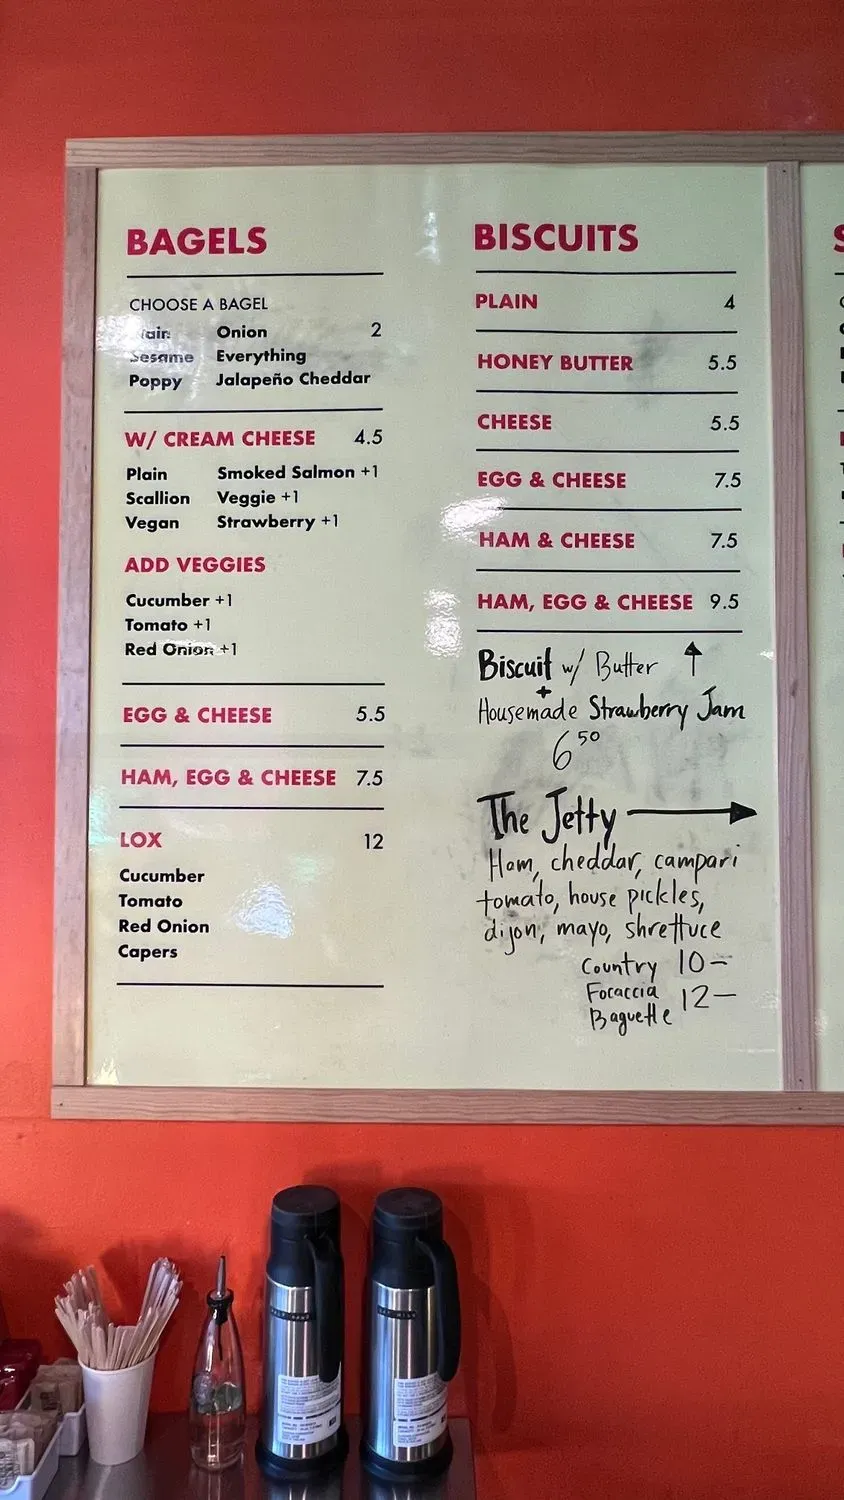 BAGELS
CHOOSE A BAGEL
Plain Onion 2
Sesame Everything
Poppy Jalapeño Cheddar
W/ CREAM CHEESE 4.5
Plain Smoked Salmon +1
Scallion Veggie +1
Vegan Strawberry +1
ADD VEGGIES
Cucumber +1
Tomato +1
Red Onion +1
EGG & CHEESE 5.5
HAM, EGG & CHEESE 7.5
LOX 12
Cucumber
Tomato
Red Onion
Capers
BISCUITS
PLAIN 4
HONEY BUTTER 5.5
CHEESE 5.5
EGG & CHEESE 7.5
HAM & CHEESE 7.5
HAM, EGG & CHEESE 9.5
Biscuit w/ Butter ↑
+
Housemade Strawberry Jam
6 50
The Jetty →
Ham, cheddar, campari
tomato, house pickles,
dijon, mayo, shrettuce
Country 10–
Focaccia 12–
Baguette